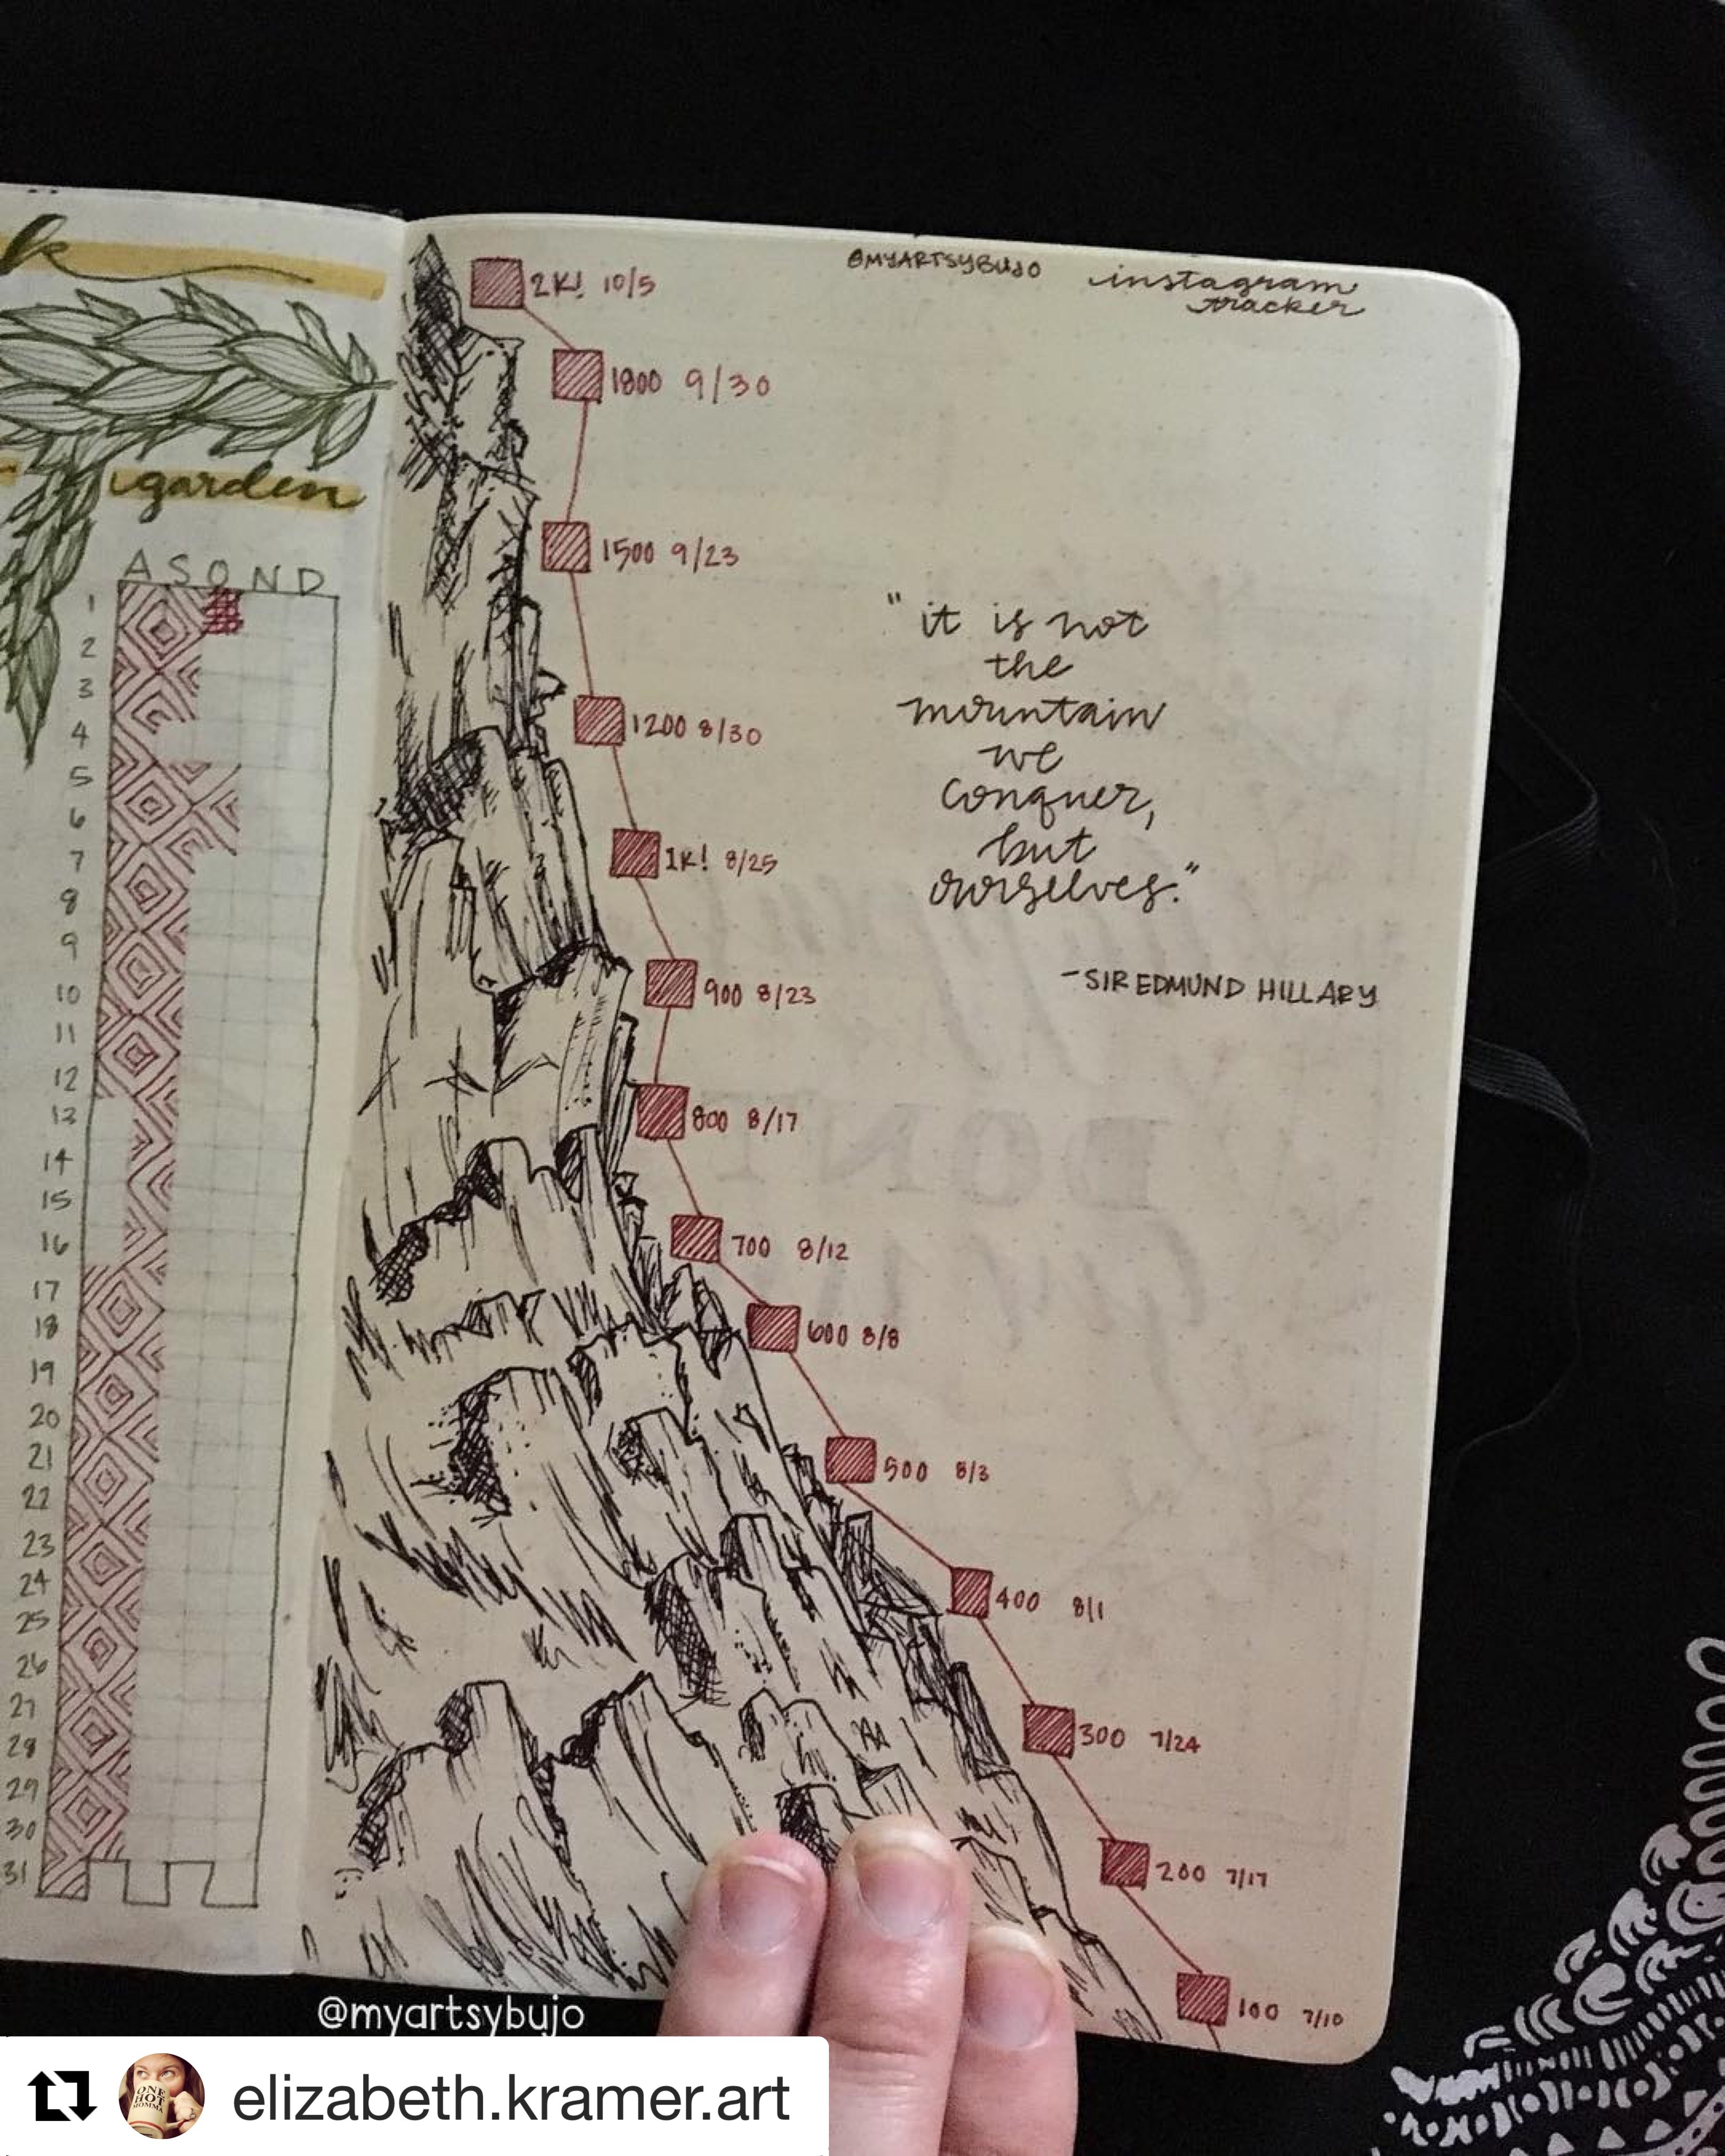 @MYARTSYBUJO
instagram
tracker
2K! 10/5
1800 9/30
1500 9/23
1200 8/30
1K! 8/25
900 8/23
800 8/17
700 8/12
600 8/8
500 8/3
400 8/1
300 7/24
200 7/17
100 7/10
"it is not
the
mountain
we
conquer,
but
ourselves."
-SIR EDMUND HILLARY
k
garden
A S O N D
1
2
3
4
5
6
7
8
9
10
11
12
13
14
15
16
17
18
19
20
21
22
23
24
25
26
27
28
29
30
31
@myartsybujo
ONE
HOT
MOMMA
elizabeth.kramer.art